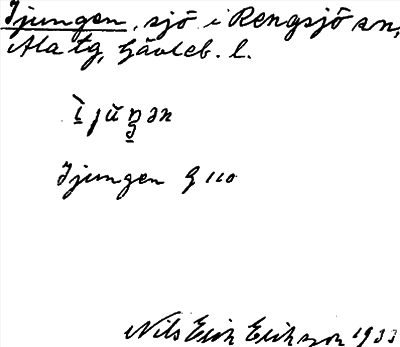 Ijungen, sjö i Rengsjö sn,
Ala tg, Gävleb. l.
ì jŭŋ̱ən
Ijungen G 110
Nils Erik Eriksson 1933